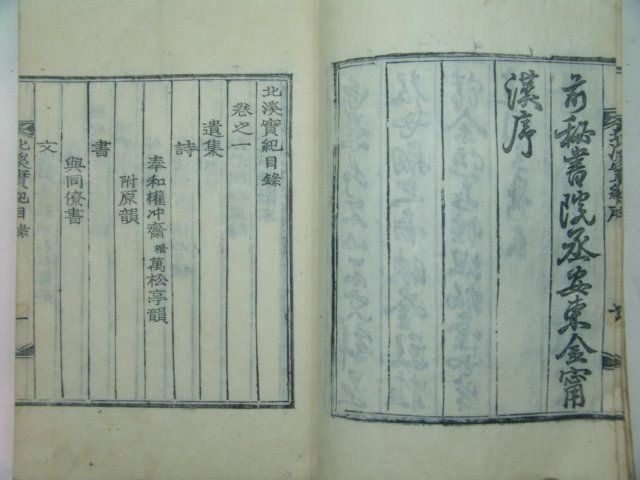 前秘書院丞安東金甯
漢序
北溪實紀序
北溪實紀目錄
卷之一
遺集
詩
奉和權冲齋橃萬松亭韻
附原韻
書
與同僚書
文
北溪實紀目錄
一